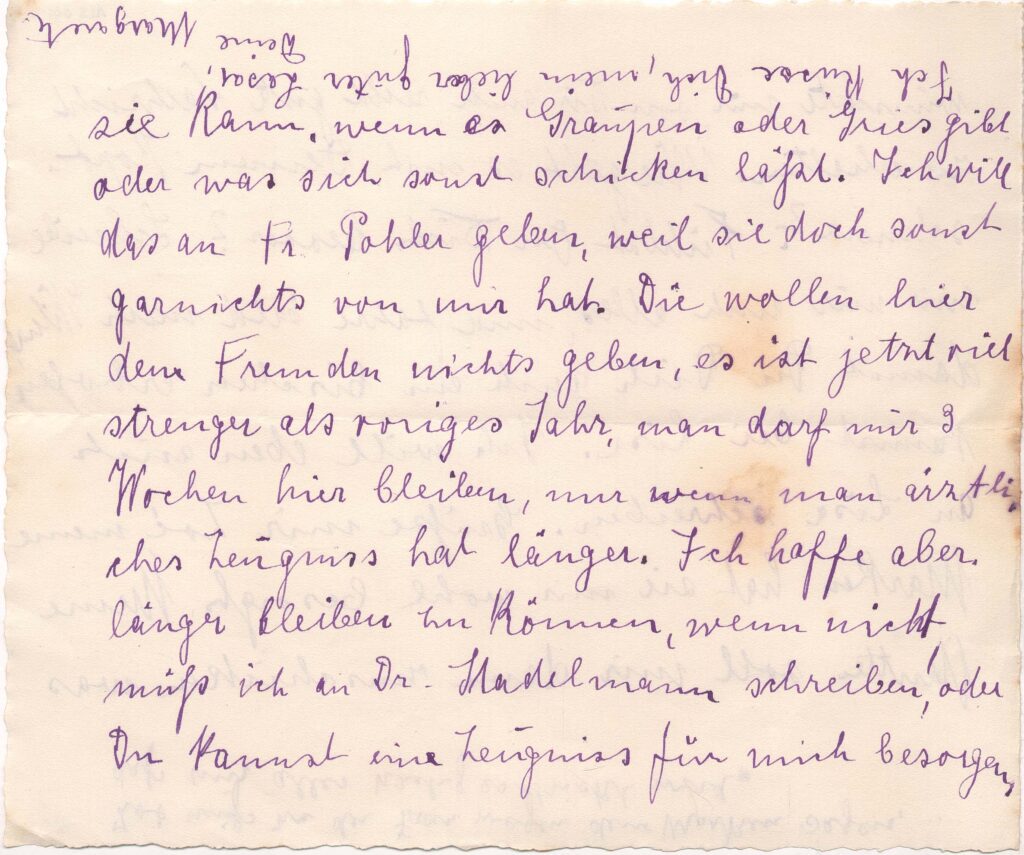 sie kann, wenn es Graupen oder Gries gibt
oder was sich sonst schicken läßt. Ich will
das an Fr. Pohler geben, weil sie doch sonst
garnichts von mir hat. Die wollen hier
den Fremden nichts geben, es ist jetzt viel
strenger als voriges Jahr, man darf nur 3
Wochen hier bleiben, nur wenn man ärztli,
ches Zeugniss hat länger. Ich hoffe aber
länger bleiben zu können, wenn nicht,
muß ich an Dr. Stadelmann schreiben, oder
Du kannst eine Zeugniss für mich besorgen,
Ich küsse Dich, mein lieber guter Lesar,
Deine Margarete.